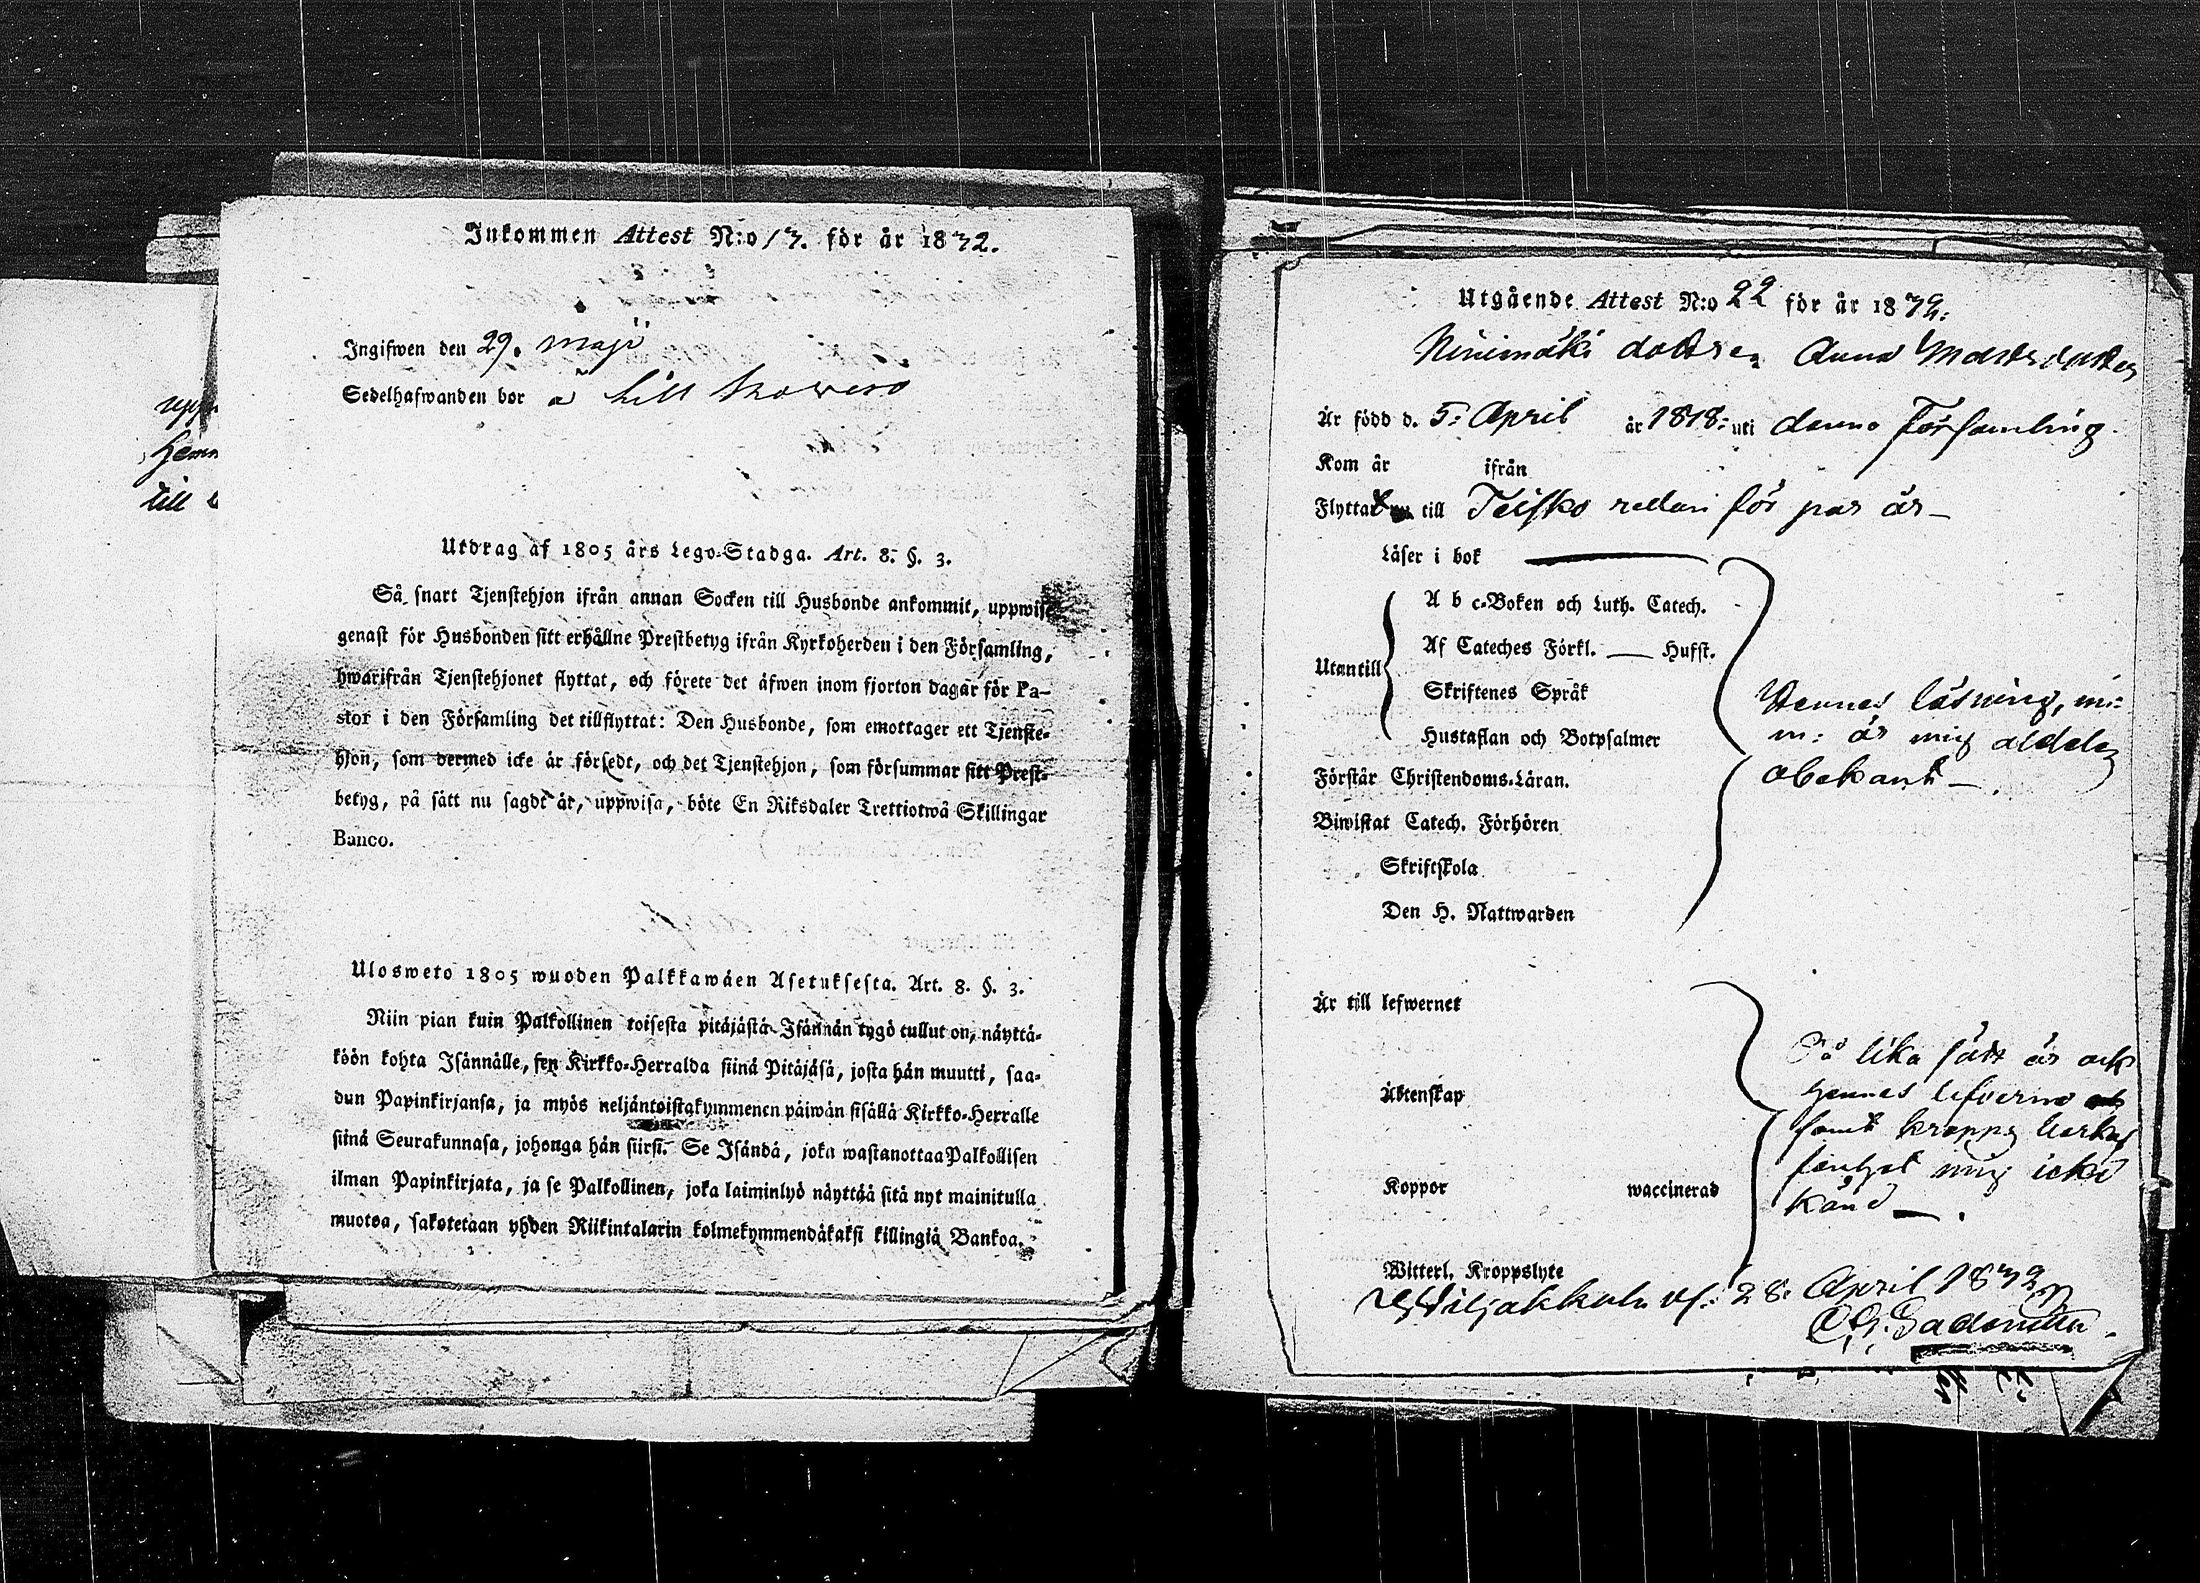 upp
hemm
till
Inkommen Attest N:o 17. för år 1832.
Ingifwen den 29. maji
Sedelhafwanden bor å lill
Utdrag af 1805 års Lego-Stadga. Art. 8. §. 3.
Så snart Tjenstehjon ifrån annan Socken till Husbonde ankommit, uppwise
genast för Husbonden sitt erhållne Prestbetyg ifrån Kyrkoherden i den Församling,
hwarifrån Tjenstehjonet flyttat, och förete det äfwen inom fjorton dagar för Pa-
stor i den Församling det tillflyttat: Den Husbonde, som emottager ett Tjenste-
hjon, som dermed icke är försedt, och det Tjenstehjon, som försummar sitt Prest-
betyg, på sätt nu sagdt är, uppwisa, böte En Riksdaler Trettiotwå Skillingar
Banco.
Ulosweto 1805 wuoden Palkkawäen Asetuksesta. Art. 8. §. 3.
Niin pian kuin Palkollinen toisesta pitäjästä Isännän tygö tullut on, näyttä-
köön kohta Isännälle, sen Kirkko-Herralda siinä Pitäjäsä, josta hän muutti, saa-
dun Papinkirjansa, ja myös neljäntoistakymmenen päiwän sisällä Kirkko-Herralle
siinä Seurakunnasa, johonga hän siirsi. Se Isändä, joka wastanottaa Palkollisen
ilman Papinkirjata, ja se Palkollinen, joka laiminlyö näyttää sitä nyt mainitulla
muotoa, sakotetaan yhden Riikintalarin kolmekymmendäkaksi killingiä Bankoa.
Utgående Attest N:o 22 för år 1832.
Ninimäki dottren Anna Mattsdotter
Är född d. 5: April år 1818: uti denna Församling.
Kom år ifrån
Flyttat till Teisko redan för par år –
Läser i bok
A b c-Boken och Luth. Catech.
Af Cateches Förkl. — Hufst.
Utantill
Skriftenes Språk
Hustaflan och Botpsalmer
Hennes läsning, m:
m: är mig aldeles
obekant –
Förstår Christendoms-Läran.
Biwistat Catech. Förhören
Skriftskola
Den H. Nattwarden
Är till lefwernet
Äktenskap
Koppor waccinerad
På lika sätt är ock
hennes lefverne
samt kropps
mig icke
känd – .
Witterl. Kroppslyte
Wiljakkala d. 28. April 1832